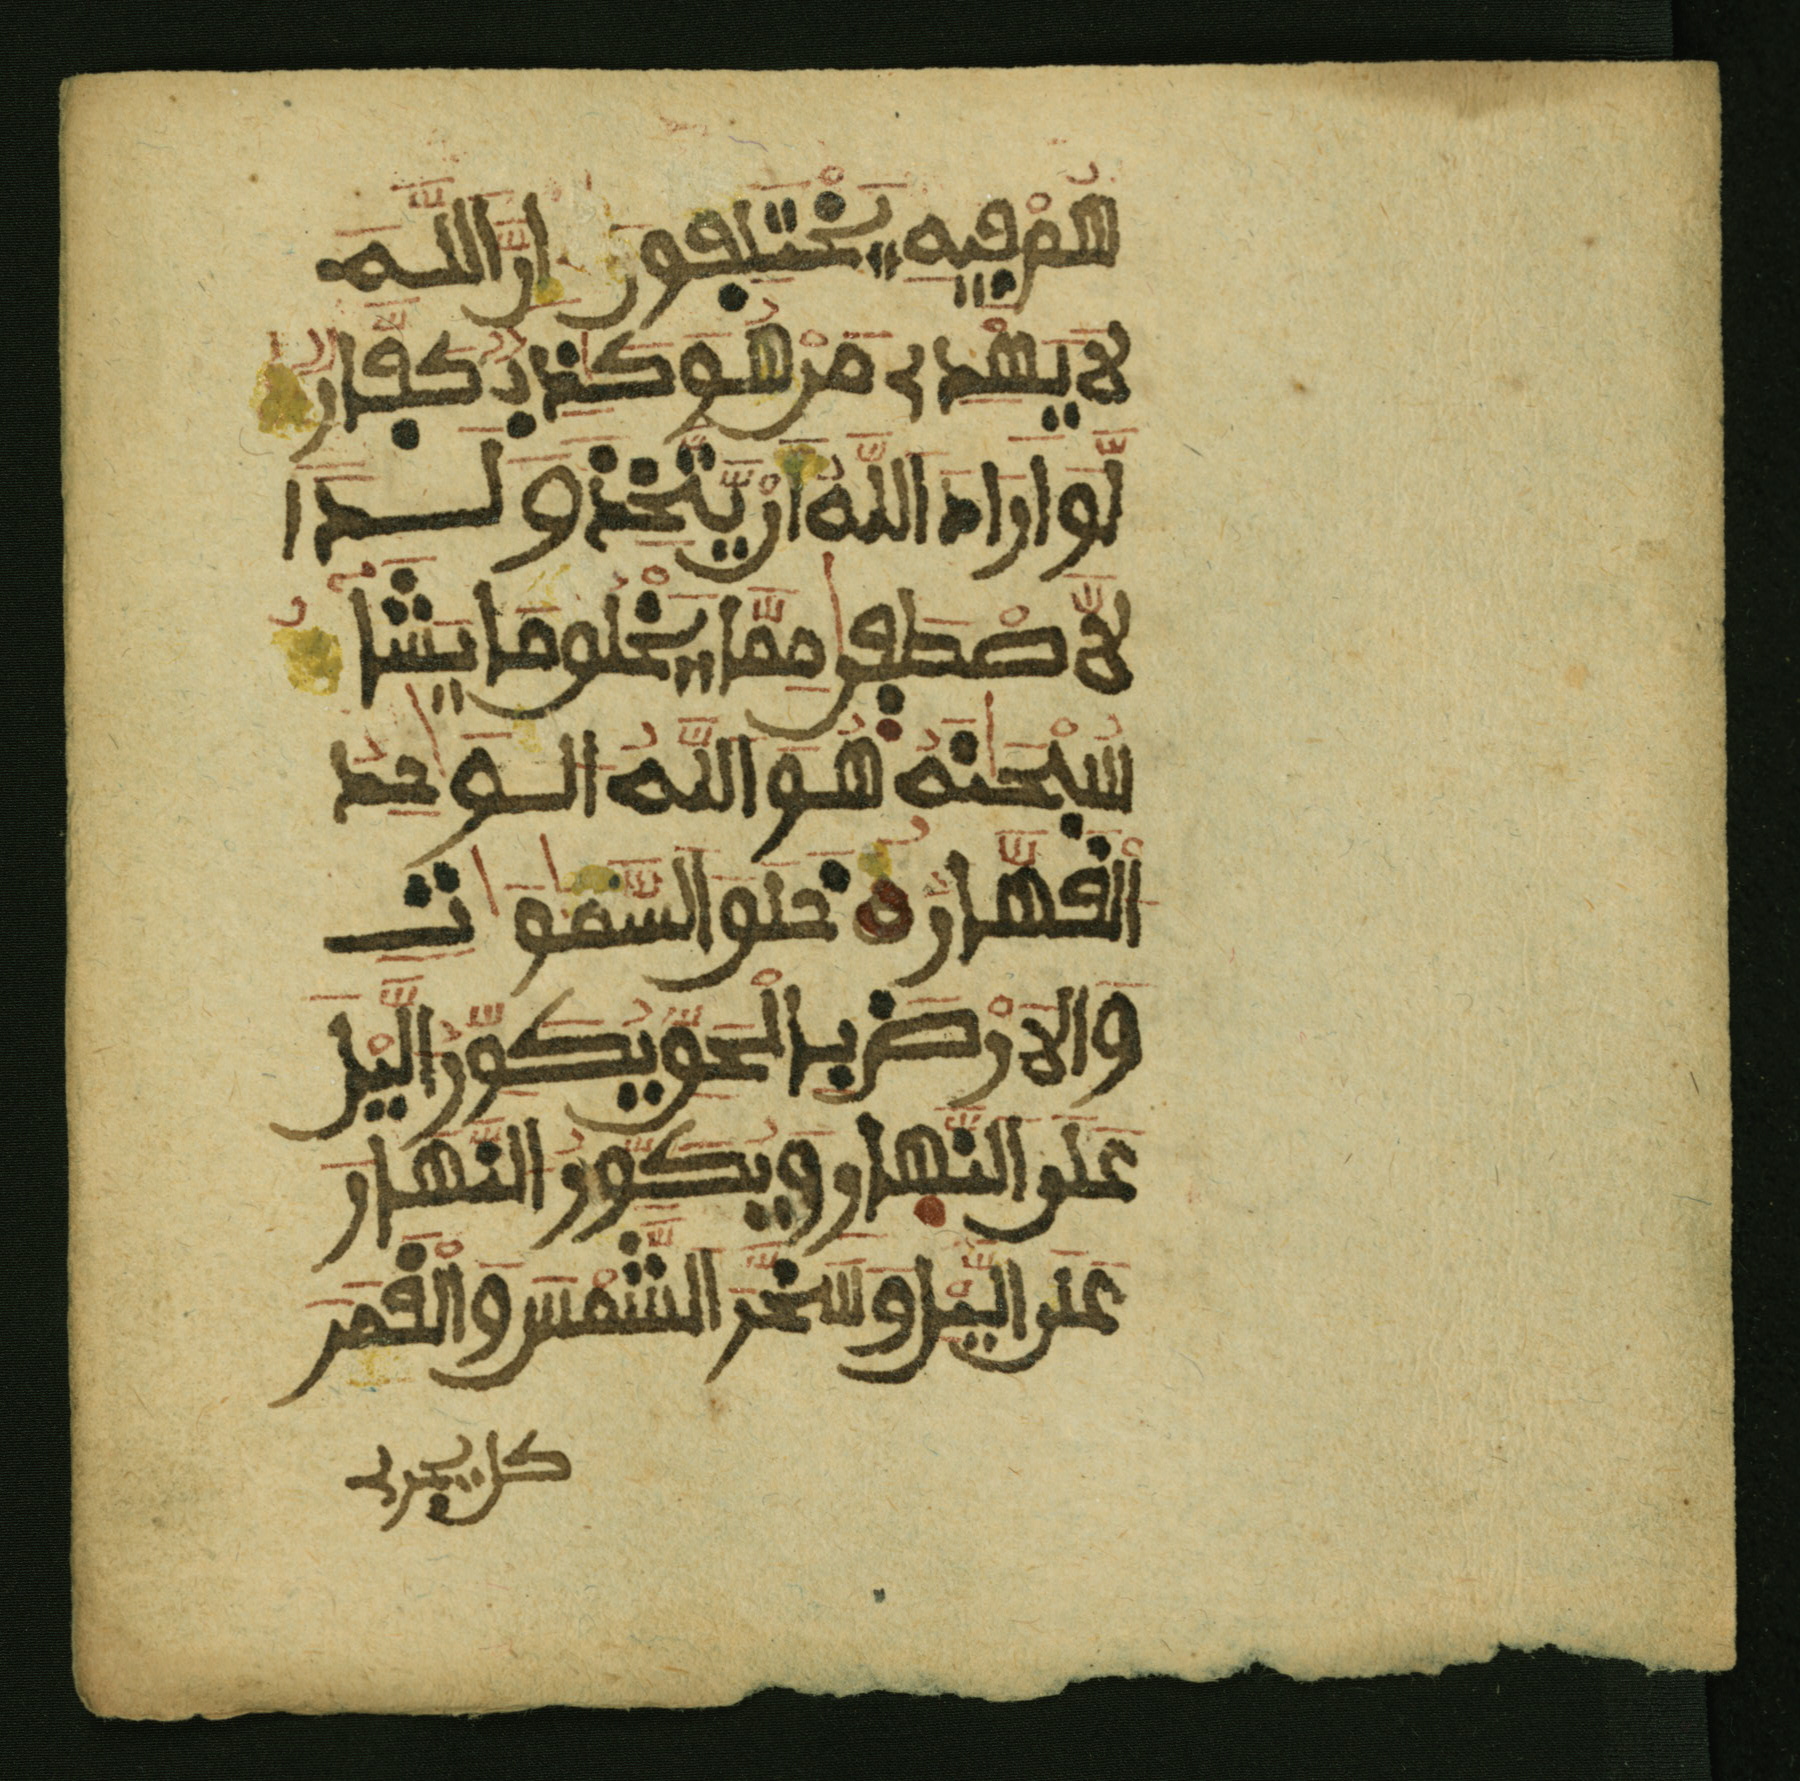 هُمْ فِيهِ يَخْتَلِفُونَ إِنَّ اللَّهَ
لَا يَهْدِي مَنْ هُوَ كَٰذِبٌ كَفَّارٌ
لَّوْ أَرَادَ اللَّهُ أَنْ يَّتَّخِذَ وَلَدًا
لَّاصْطَفَىٰ مِمَّا يَخْلُقُ مَا يَشَاءُ
سُبْحَٰنَهُ هُوَ اللَّهُ الْوَٰحِدُ
الْقَهَّارُ خَلَقَ السَّمَٰوَٰتِ
وَالْأَرْضَ بِالْحَقِّ يُكَوِّرُ الَّيْلَ
عَلَى النَّهَارِ وَيُكَوِّرُ النَّهَارَ
عَلَى الَّيْلِ وَسَخَّرَ الشَّمْسَ وَالْقَمَرَ
كل يجري